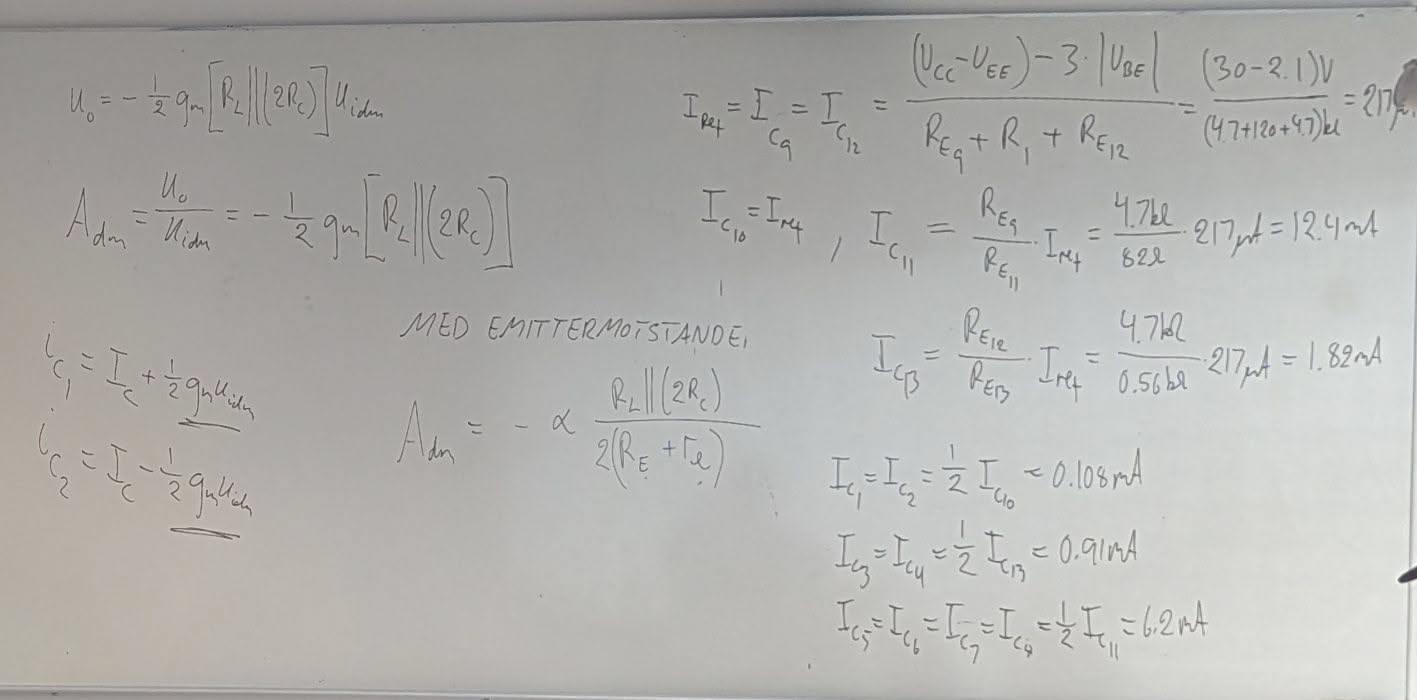 u₀ = - 1/2 gₘ [R_L || (2R_C)] u_idm
A_dm = u₀/u_idm = - 1/2 gₘ [R_L || (2R_C)]
i_C₁ = I_C + 1/2 gₘ u_idm
i_C₂ = I_C - 1/2 gₘ u_idm
MED EMITTERMOTSTANDE,
A_dm = - α R_L || (2R_C) / 2(R_E + r_e)
I_Ref = I_C9 = I_C12 = (U_CC - U_EE) - 3·|U_BE| / R_E9 + R_1 + R_E12 = (30 - 2.1)V / (4.7+120+4.7)kΩ = 217μ
I_C10 = I_ref , I_C11 = R_E9/R_E11 · I_ref = 4.7kΩ/82Ω · 217μA = 12.4mA
I_C13 = R_E12/R_E13 · I_ref = 4.7kΩ/0.56kΩ · 217μA = 1.82mA
I_C1 = I_C2 = 1/2 I_C10 = 0.108mA
I_C3 = I_C4 = 1/2 I_C13 = 0.91mA
I_C5 = I_C6 = I_C7 = I_C8 = 1/2 I_C11 = 6.2mA